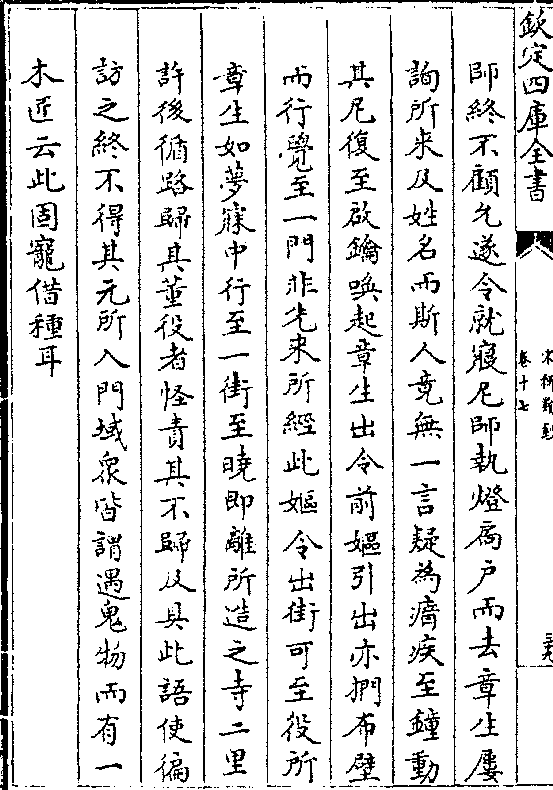 欽定四庫全書
宋稗類鈔
卷十七
師終不顧允遂令就寢尼師執燈扃户而去章生屢
詢所来及姓名而斯人竟無一言疑為瘖疾至鐘動
其尼復至啟鑰喚起章生出令前嫗引出亦捫布壁
而行覺至一門非先来所經此嫗令出街可至役所
章生如夢寐中行至一街至曉即離所造之寺二里
許後循路歸其董役者怪責其不歸及具此語使徧
訪之終不得其元所入門域衆皆謂遇鬼物而有一
木匠云此固寵借種耳